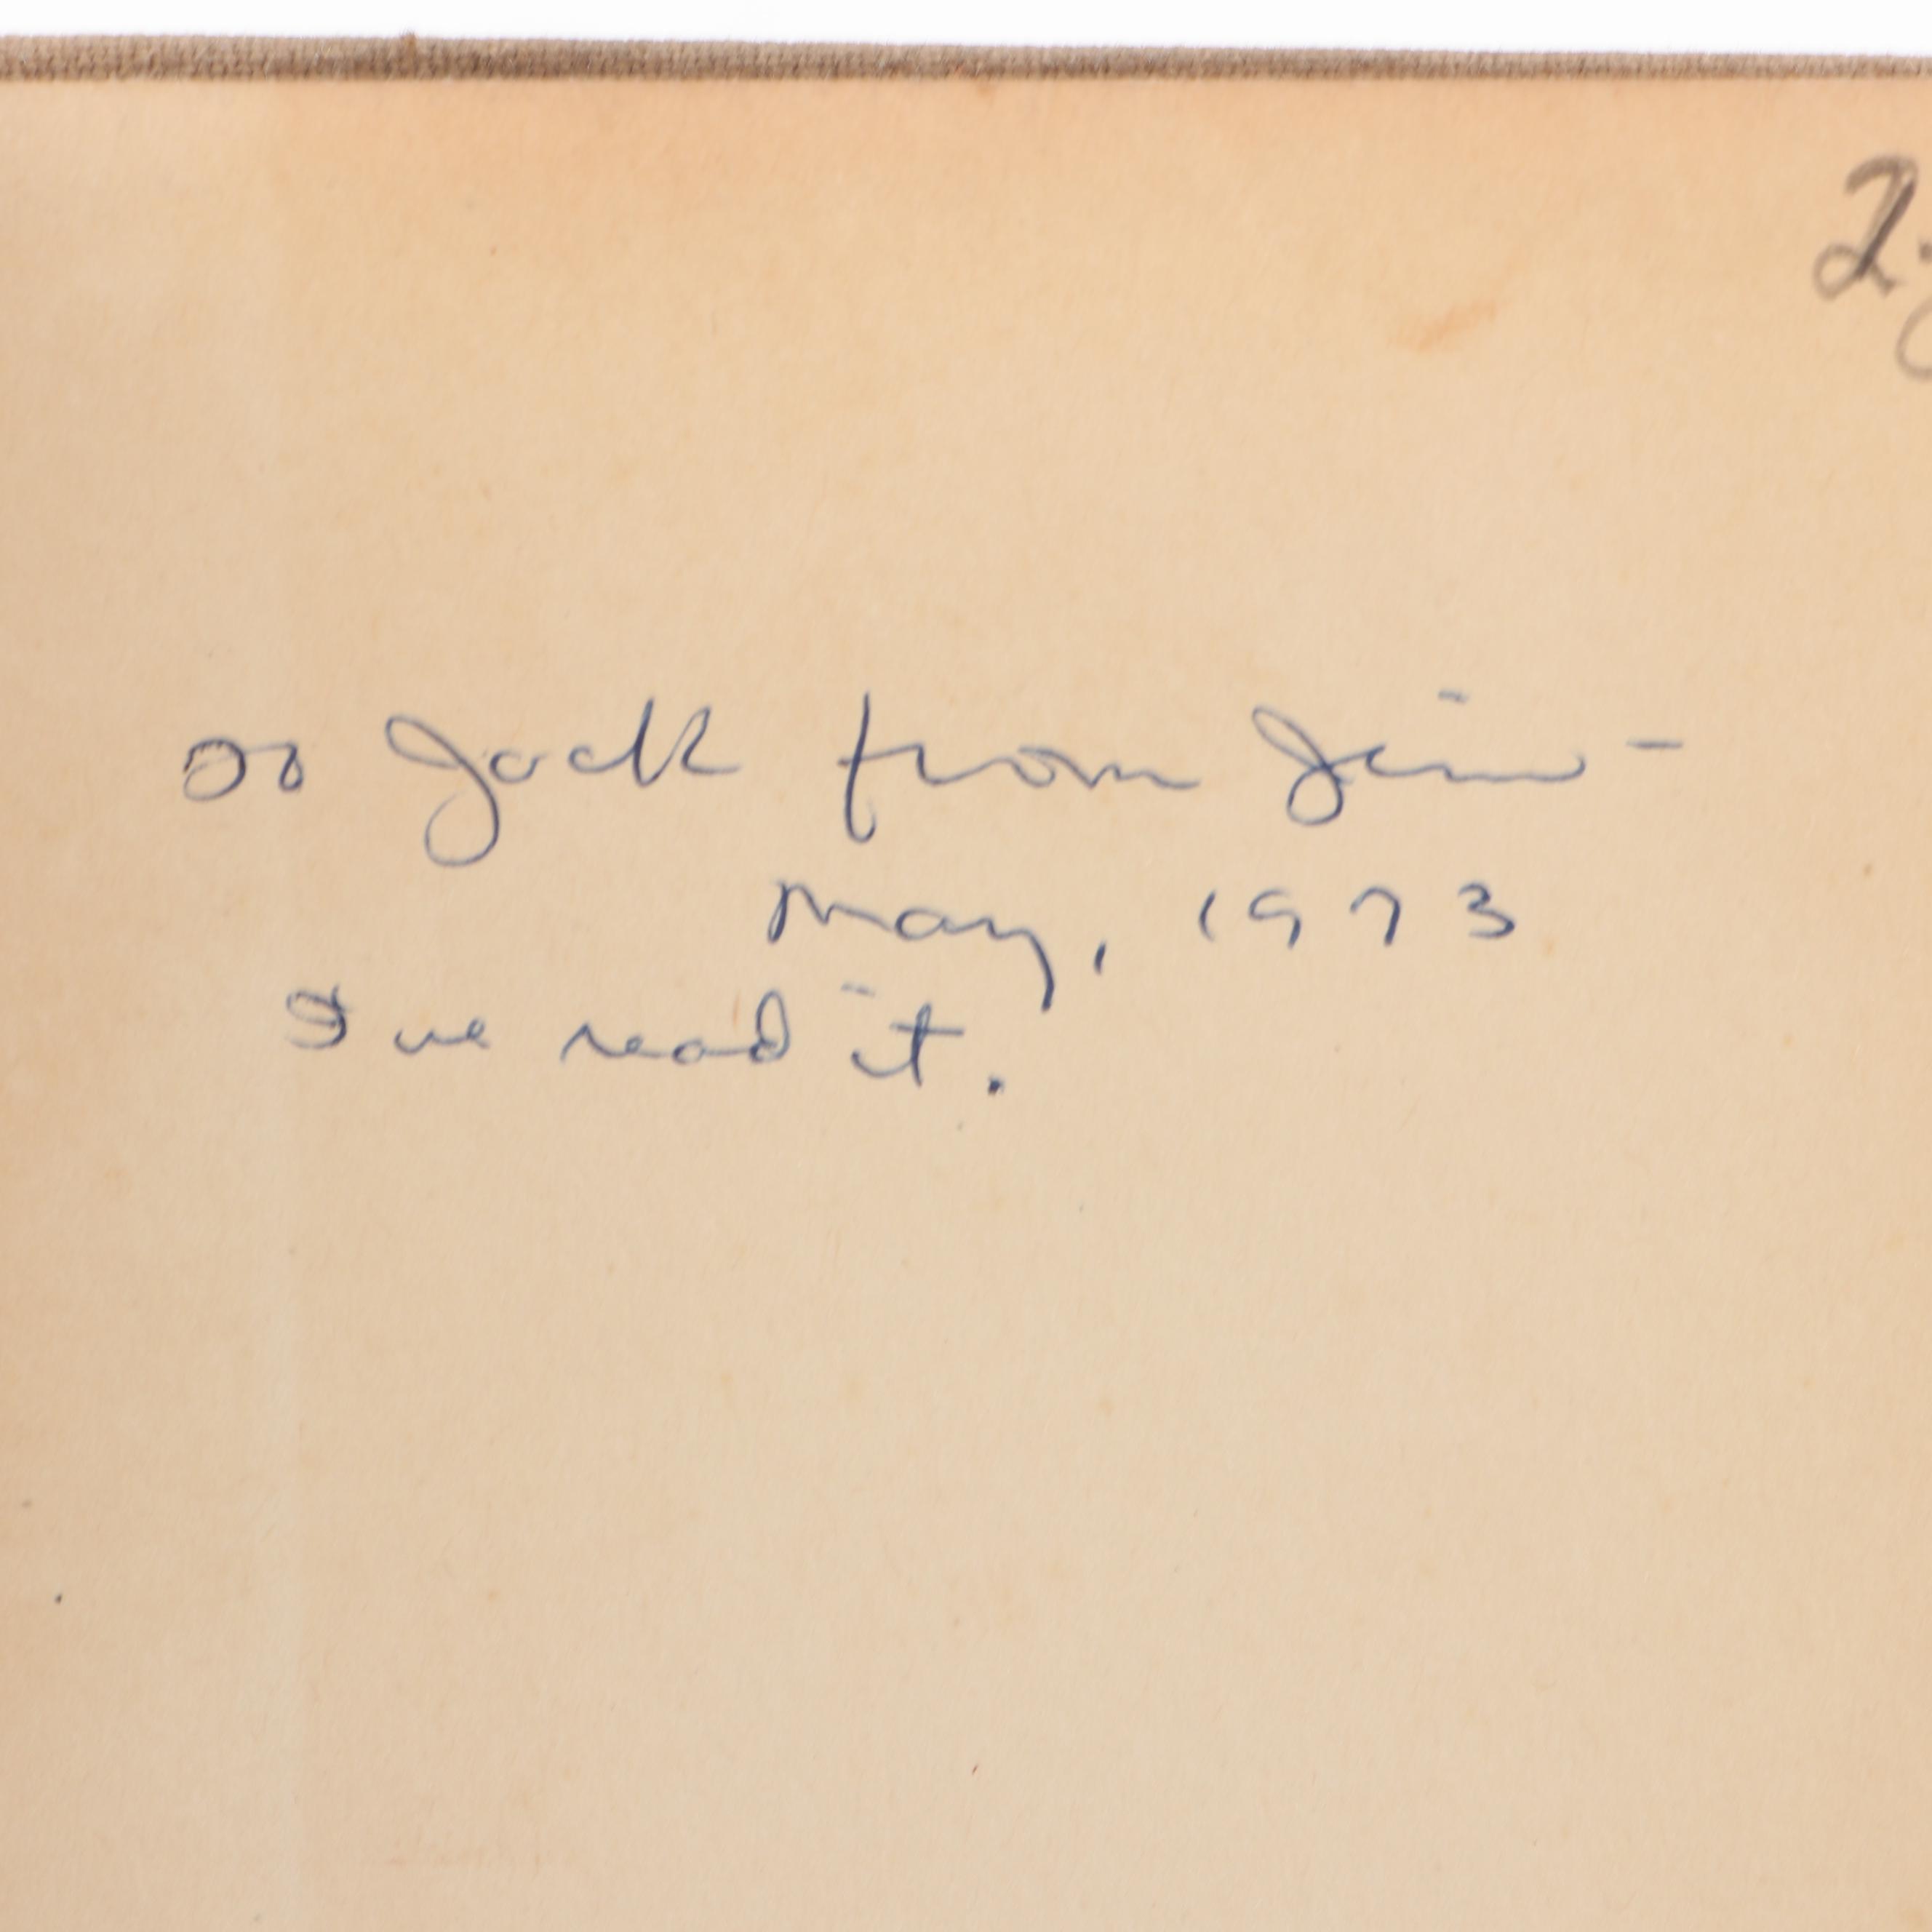 2.
To Jack from Jim –
May, 1973
I've read it.